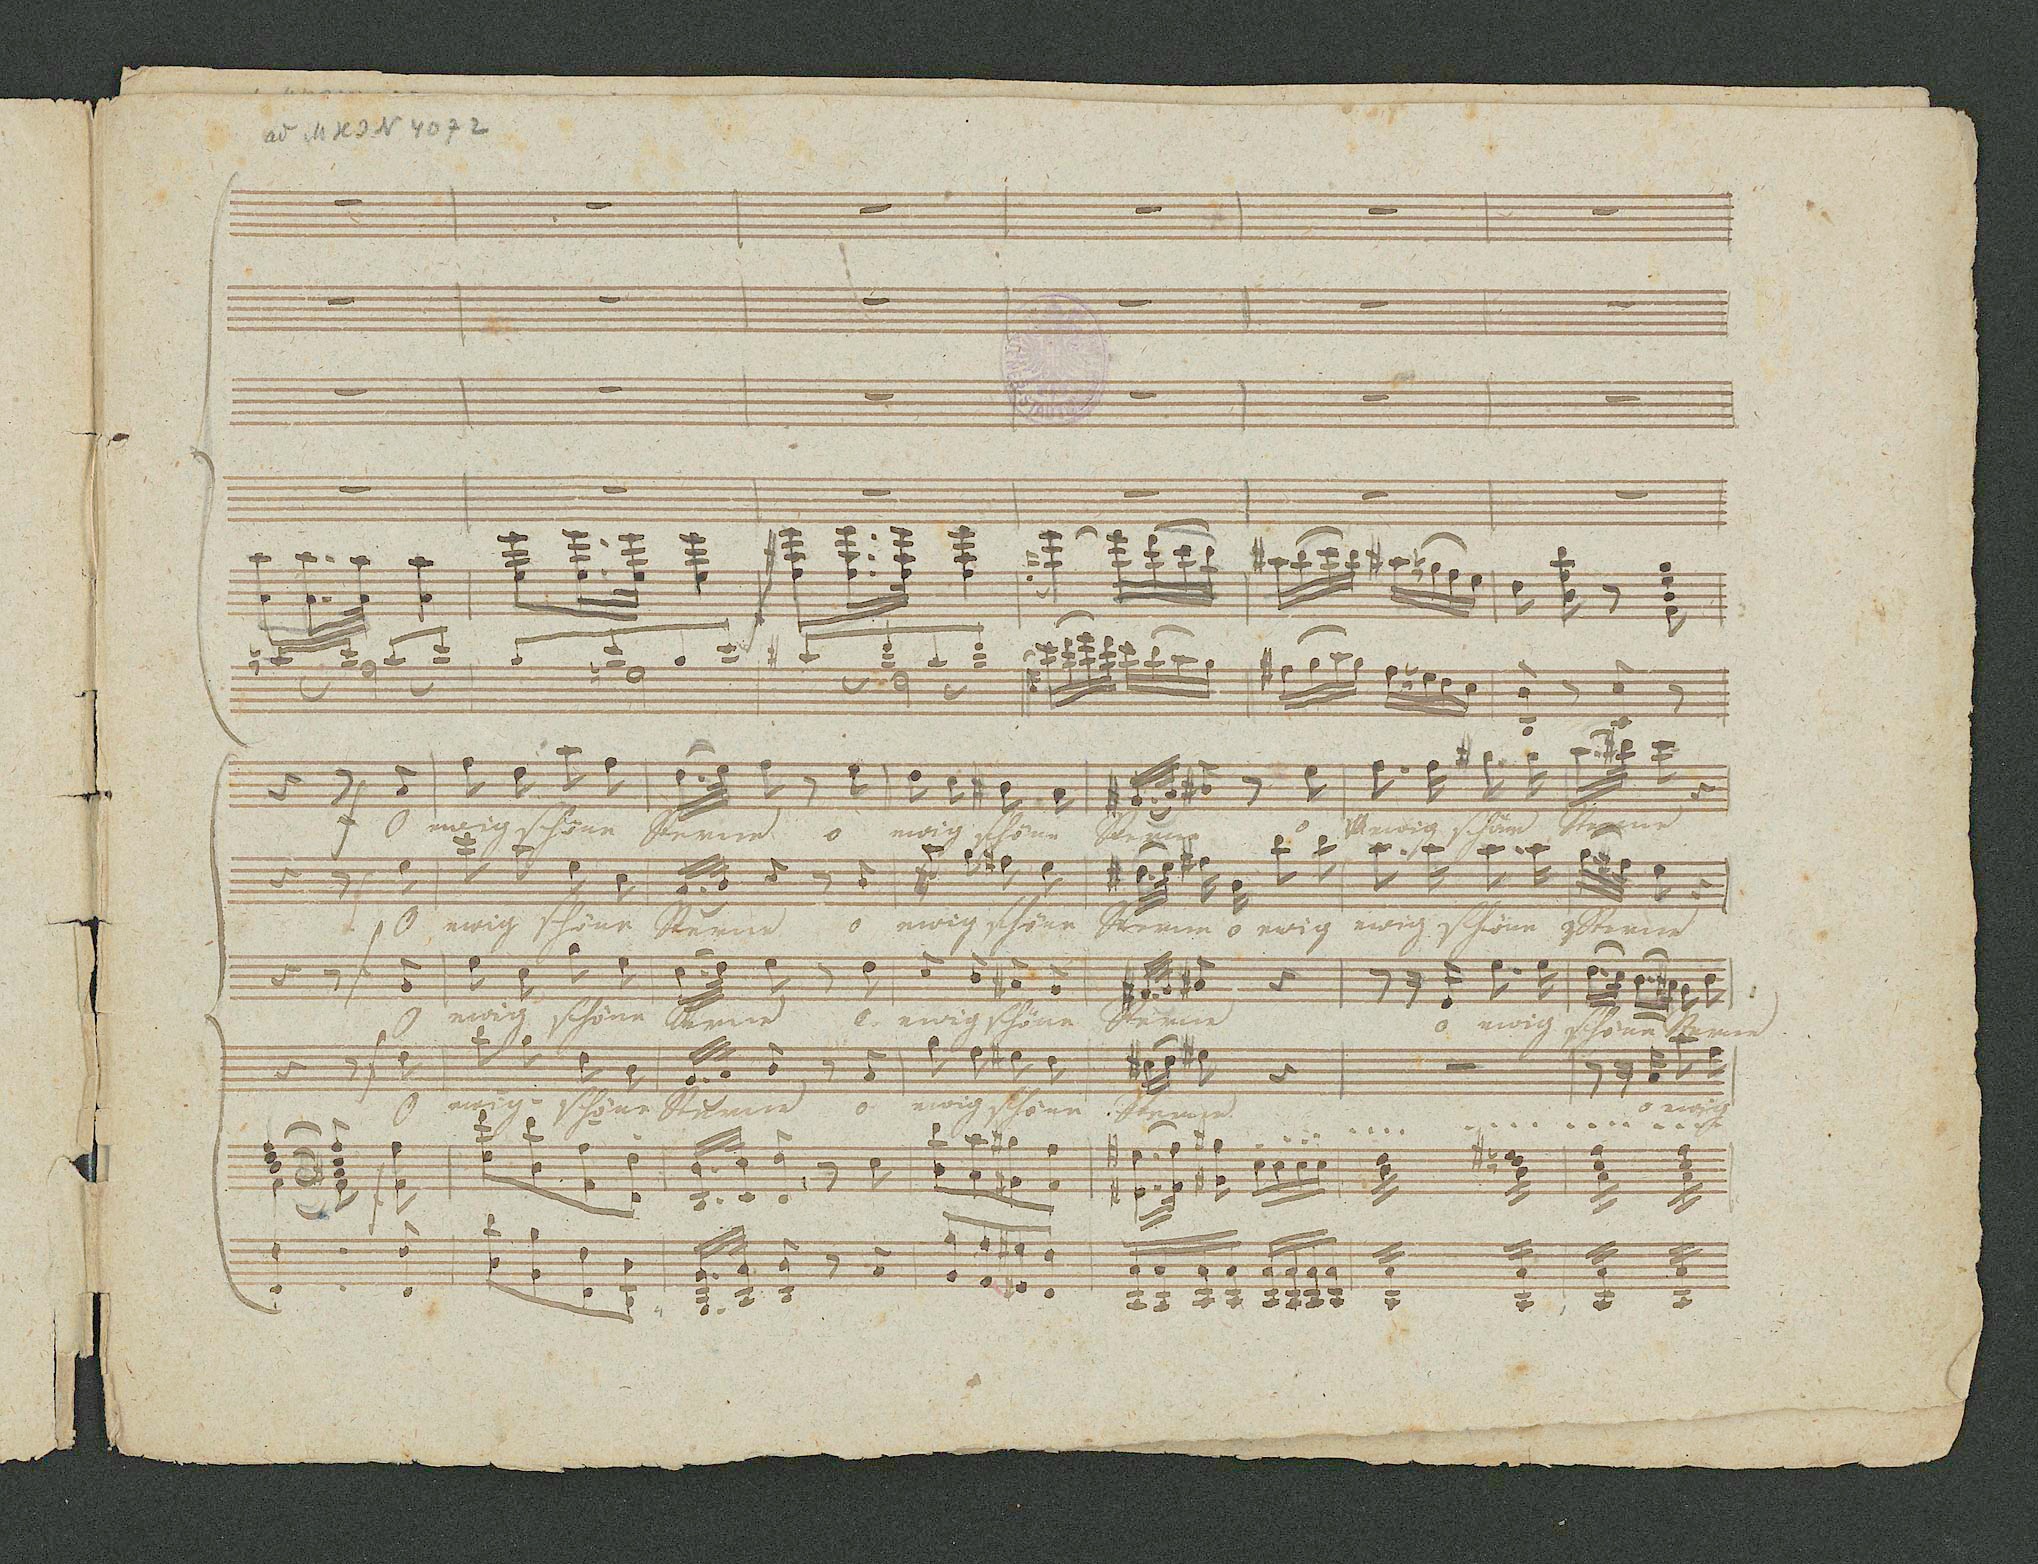 ad MHIN 4072
f O ewig schöne Sterne o ewig schöne Sterne o ewig schöne Sterne
f O ewig schöne Sterne o ewig schöne Sterne o ewig ewig schöne Sterne
f O ewig schöne Sterne o ewig schöne Sterne o ewig schöne Sterne
f O ewig schöne Sterne o ewig schöne Sterne o ewig
f